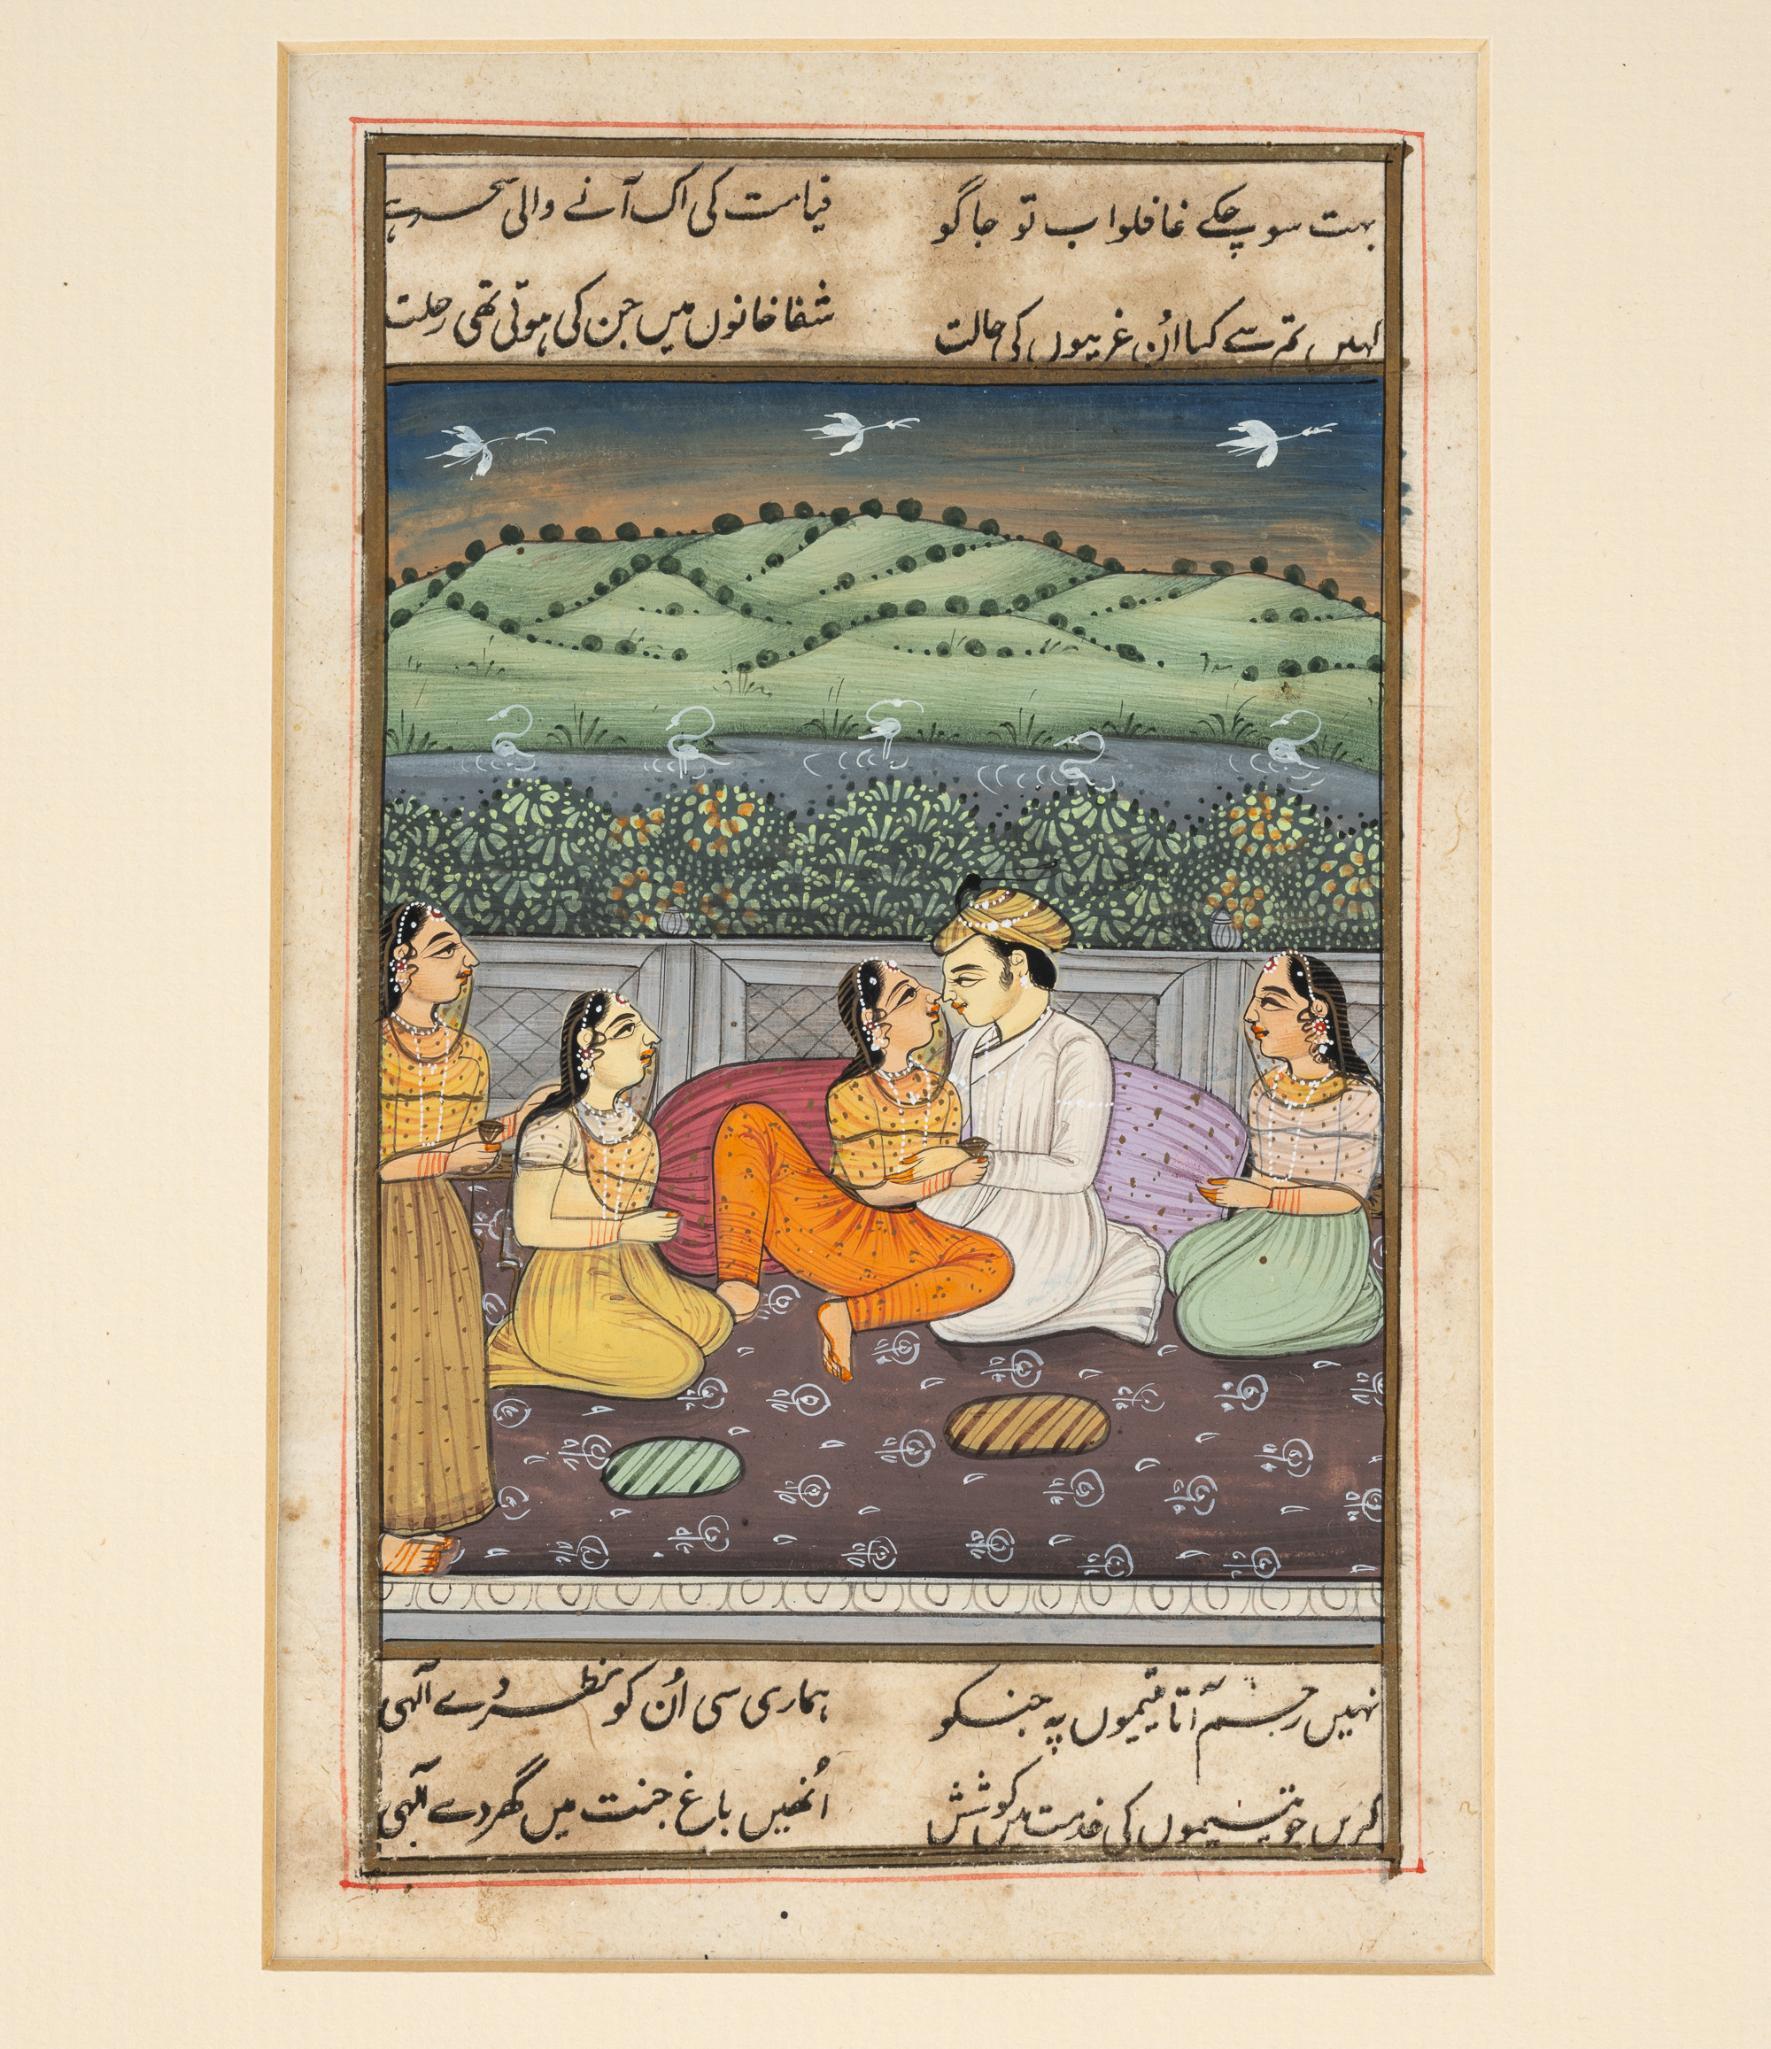 بہت سو چکے غافلو اب تو جاگو قیامت کی اک آنے والی سحر ہے
کہیں تم سے کیا اُن غریبوں کی حالت شفاخانوں میں جن کی ہوتی تھی رحلت
نہیں رحم آتا یتیموں پہ جنکو ہماری سی اُن کو نظر دے الٰہی
کریں جو یتیموں کی خدمت میں کوشش اُنھیں باغ جنت میں گھر دے الٰہی